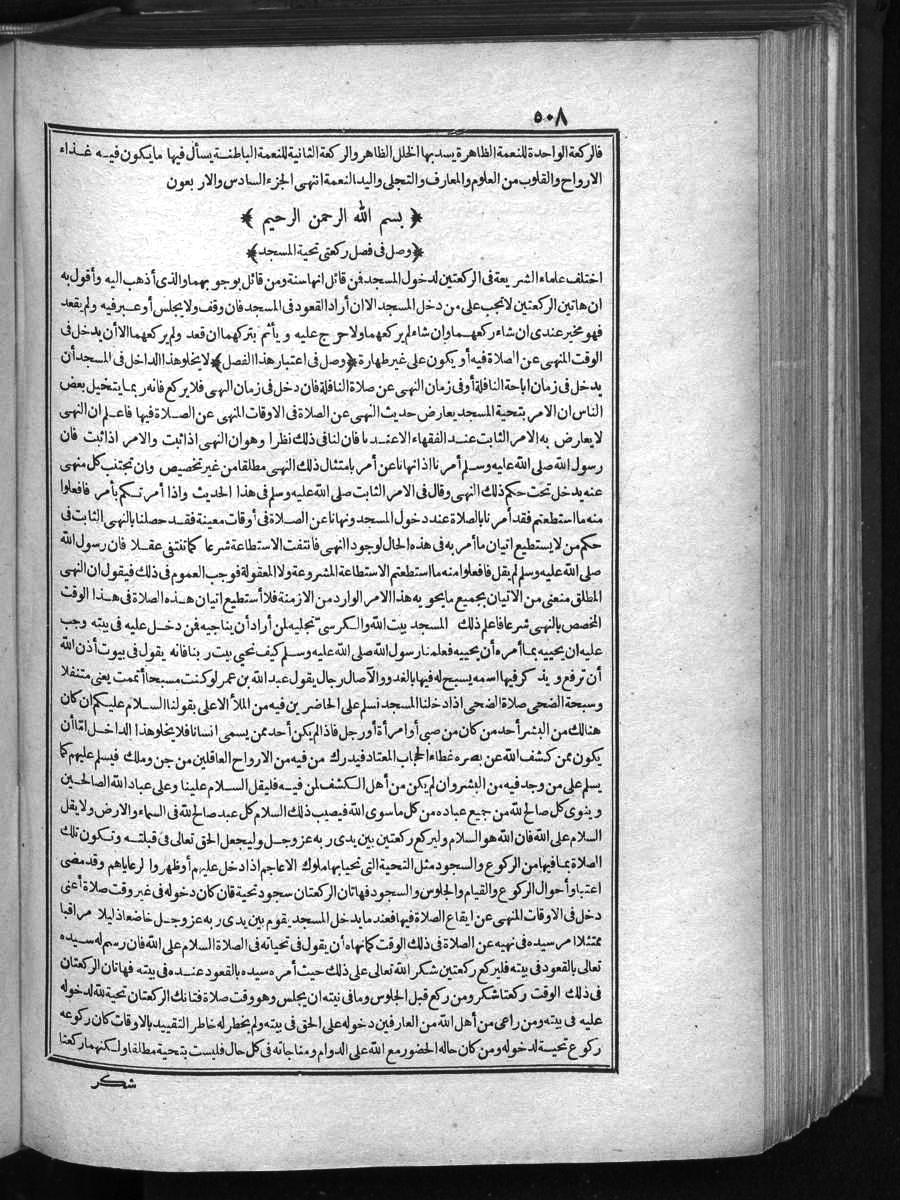 ٥٠٨
فالركعة الواحدة للنعمة الظاهرة يسد بها الخلل الظاهر والركعة الثانية للنعمة الباطنة يسأل فيها ما يكون فيه غذاء
الارواح والقلوب من العلوم والمعارف والتجلى واليد النعمة انتهى الجزء السادس والاربعون
﴿ بسم الله الرحمن الرحيم ﴾
﴿ وصل فى فصل ركعتى تحية المسجد ﴾
اختلف علماء الشريعة فى الركعتين لدخول المسجد فمن قائل انها سنة ومن قائل بوجوبهما والذى أذهب اليه وأقول به
ان هاتين الركعتين لا تجب على من دخل المسجد الا ان أراد القعود فى المسجد فان وقف ولا يجلس أو عبر فيه ولم يقعد
فهو مخير عندى ان شاء ركعهما وان شاء لم يركعهما ولا حرج عليه ويأثم بتركهما ان قعد ولم يركعهما الا أن يدخل فى
الوقت المنهى عن الصلاة فيه أو يكون على غير طهارة ﴿ وصل فى اعتبار هذا الفصل ﴾ لا يخلو هذا الداخل فى المسجد أن
يدخل فى زمان اباحة النافلة أو فى زمان النهى عن صلاة النافلة فان دخل فى زمان النهى فلا يركع فانه ربما يتخيل بعض
الناس ان الامر بتحية المسجد يعارض حديث النهى عن الصلاة فى الاوقات المنهى عن الصلاة فيها فاعلم ان النهى
لا يعارض به الامر الثابت عند الفقهاء الا عندنا فان لنا فى ذلك نظرا وهو ان النهى اذا ثبت والامر اذا ثبت فان
رسول الله صلى الله عليه وسلم أمرنا اذا نهانا عن أمر بامتثال ذلك النهى مطلقا من غير تخصيص وان نجتنب كل منهى
عنه يدخل تحت حكم ذلك النهى وقال فى الامر الثابت صلى الله عليه وسلم فى هذا الحديث واذا أمرتكم بأمر فافعلوا
منه ما استطعتم فقد أمرنا بالصلاة عند دخول المسجد ونهانا عن الصلاة فى أوقات معينة فقد حصلنا بالنهى الثابت فى
حكم من لا يستطيع اتيان ما أمر به فى هذه الحال لوجود النهى فانتفت الاستطاعة شرعا كما تنتفى عقلا فان رسول الله
صلى الله عليه وسلم لم يقل فافعلوا منه ما استطعتم الاستطاعة المشروعة ولا المعقولة فوجب العموم فى ذلك فيقول ان النهى
المطلق منعنى من الاتيان بجميع ما يحويه هذا الامر الوارد من الازمنة فلا أستطيع اتيان هذه الصلاة فى هذا الوقت
المخصص بالنهى شرعا فاعلم ذلك المسجد بيت الله والكرسىّ تجليه لمن أراد أن يناجيه فمن دخل عليه فى بيته وجب
عليه ان يحييه بما أمره أن يحييه فعلمنا رسول الله صلى الله عليه وسلم كيف نحيى بيت ربنا فانه يقول فى بيوت أذن الله
أن ترفع ويذكر فيها اسمه يسبح له فيها بالغدو والآصال رجال يقول عبد الله بن عمر لو كنت مسبحا أتممت يعنى متنفلا
وسبحة الضحى صلاة الضحى اذا دخلنا المسجد نسلم على الحاضرين فيه من الملأ الاعلى بقولنا السلام عليكم ان كان
هنالك من البشر أحد من كان من صبى أو امرأة أو رجل فاذا لم يكن أحد ممن يسمى انسانا فلا يخلو هذا الداخل امّا أن
يكون ممن كشف الله عن بصره غطاء الحجاب المعتاد فيدرك من فيه من الارواح العاقلين من جن وملك فيسلم عليهم كما
يسلم على من وجد فيه من البشر وان لم يكن من أهل الكشف لمن فيه فليقل السلام علينا وعلى عباد الله الصالحين
وينوى كل صالح لله من جميع عباده من كل ما سوى الله فيصيب ذلك السلام كل عبد صالح لله فى السماء والارض ولا يقل
السلام على الله فان الله هو السلام وليركع ركعتين بين يدى ربه عز وجل وليجعل الحق تعالى فى قبلته وتكون تلك
الصلاة بما فيها من الركوع والسجود مثل التحية التى تحيا بها ملوك الاعاجم اذا دخل عليهم أو ظهروا لرعاياهم وقد مضى
اعتبار أحوال الركوع والقيام والجلوس والسجود فهاتان الركعتان سجود تحية فان كان دخوله فى غير وقت صلاة أعنى
دخل فى الاوقات المنهى عن ايقاع الصلاة فيها فعند ما يدخل المسجد يقوم بين يدى ربه عز وجل خاضعا ذليلا مراقبا
ممتثلا أمر سيده فى نهيه عن الصلاة فى ذلك الوقت كما نهاه أن يقول فى تحياته فى الصلاة السلام على الله فان رسم له سيده
تعالى بالقعود فى بيته فليركع ركعتين شكر الله تعالى على ذلك حيث أمره سيده بالقعود عنده فى بيته فهاتان الركعتان
فى ذلك الوقت ركعتا شكر ومن ركع قبل الجلوس وما فى نيته ان يجلس وهو وقت صلاة فتانك الركعتان تحية لله لدخوله
عليه فى بيته ومن راعى من أهل الله من العارفين دخوله على الحق فى بيته ولم يخطر له خاطر التقييد بالاوقات كان ركوعه
ركوع تحية لدخوله ومن كان حاله الحضور مع الله على الدوام ومناجاته فى كل حال فليست بتحية مطلقا ولكنهما ركعتا
شكر